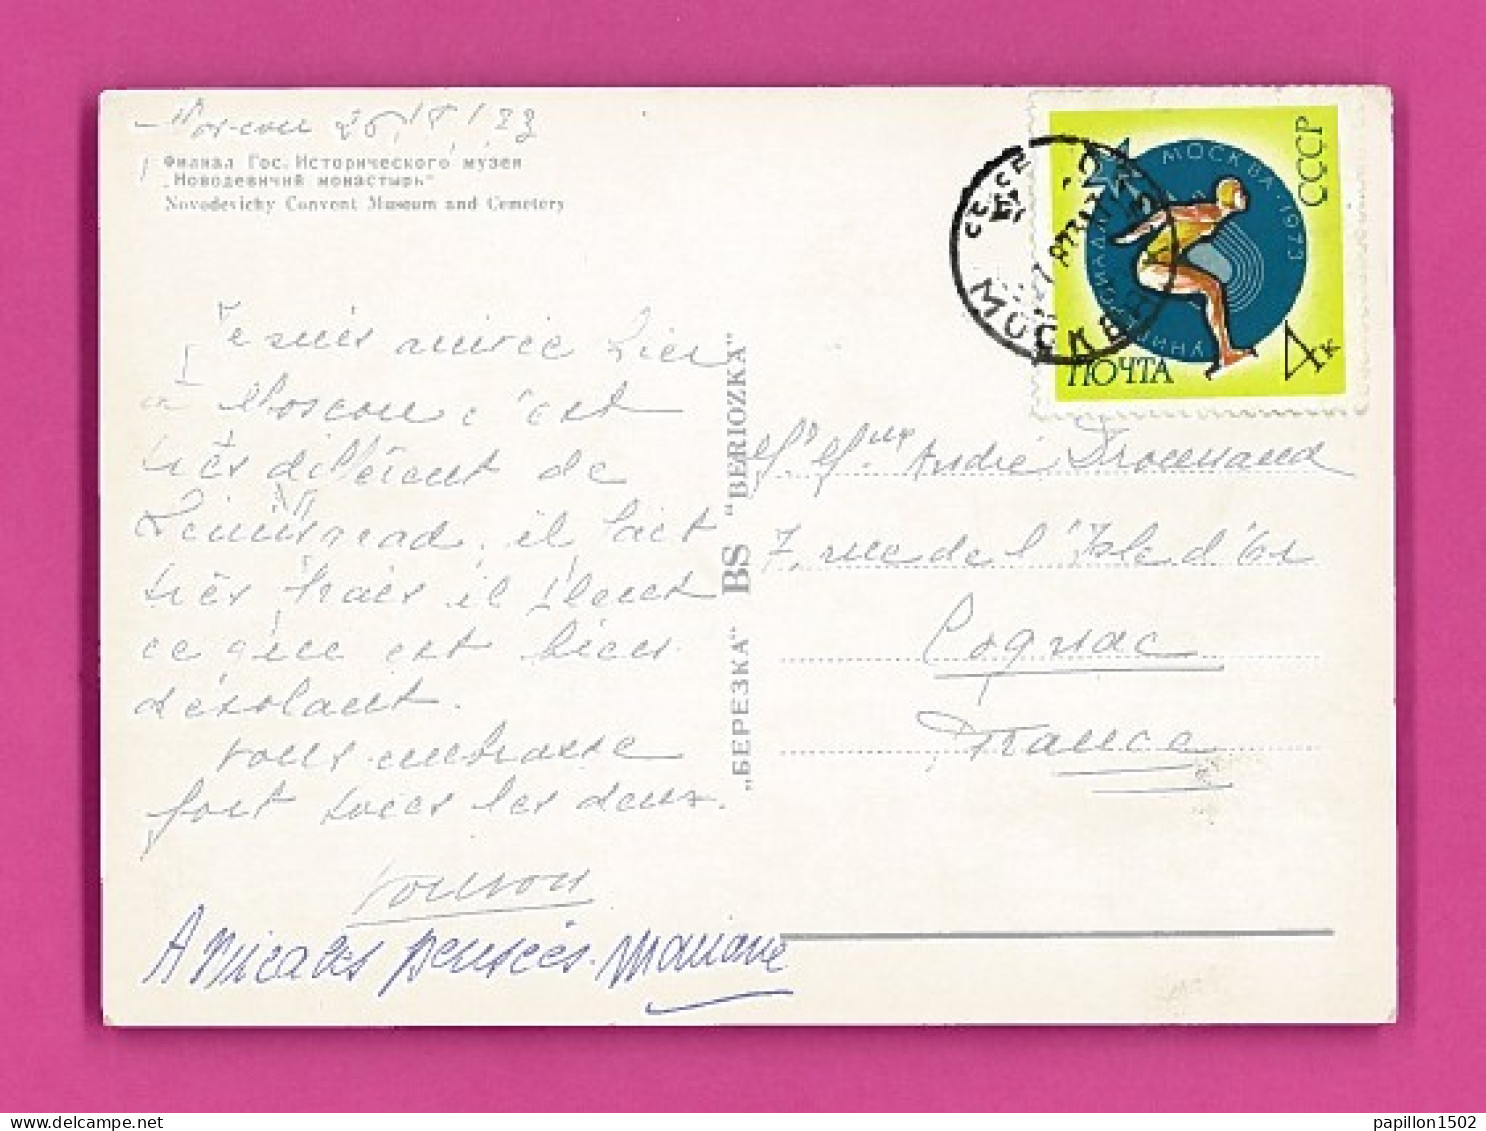 Moscou
Филиал Гос. Исторического музея
„Новодевичий монастырь“
Novodevichy Convent Museum and Cemetery
Je suis arrivée hier
à Moscou c'est
très différent de
Leningrad, il fait
très frais il pleut
ce qui est bien
désolant.
vous embrasse
fort tous les deux.
Amicales pensées. Mariane
„БЕРЕЗКА“ BS "BERIOZKA"
МОСКВА · 1973
СССР
ПОЧТА
4к
МОСКВА
Mr Mme André
7, rue de l'Isle d'or
Cognac
France
papillon1502